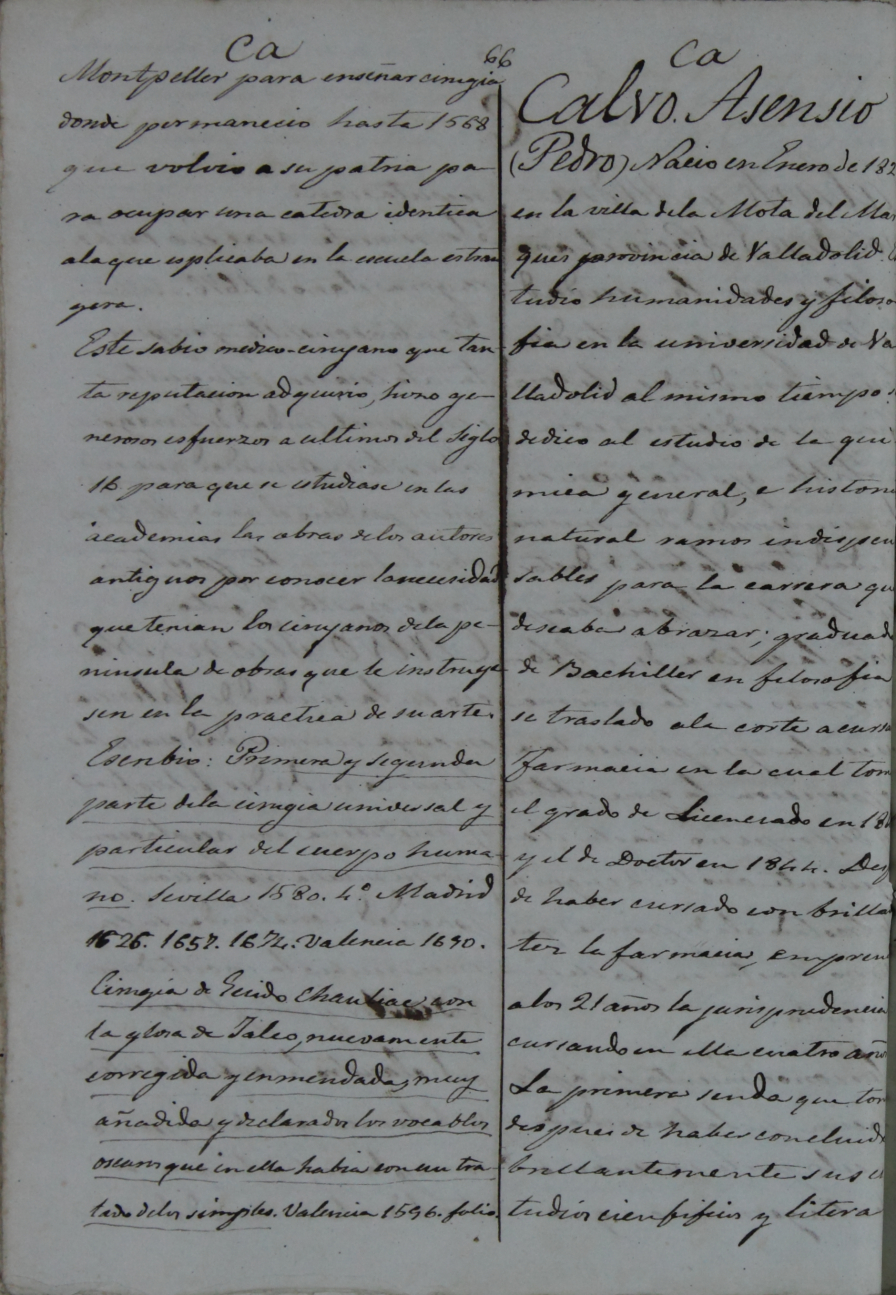 Ca
66
Montpeller para enseñar cirugia
donde permanecio hasta 1568
que volvio a su patria pa-
ra ocupar una catedra identica
ala que esplicaba en la escuela estran
gera.
Este sabio medico-cirujano que tan
ta reputacion adquirio, hizo ge-
nerosos esfuerzos a ultimos del siglo
16 para que se estudiase en las
academias las obras delos autores
antiguos por conocer la necesidad
que tenian los cirujanos dela pe-
ninsula de obras que le instruye
sen en la practica de su arte.
Escribio: Primera y segunda
parte dela cirugia universal y
particular del cuerpo huma-
no. Sevilla 1580. 4º Madrid
1626. 1657. 1674. Valencia 1690.
Cirugia de Guido Chauliac con
la glosa de Falco, nuevamente
corregida y enmendada, muy
añadida y declarados los vocablos
oscuros que in ella habia con un tra
tado delos simples. Valencia 1596. folio.
Ca
Calvo. Asensio
(Pedro) Nacio en Enero de 182
en la villa dela Mota del Mar
ques provincia de Valladolid. E
tudio humanidades y filoso
fia en la universidad de Va
lladolid al mismo tiempo s
dedico al estudio de la qui
mica general, e histori
natural ramos indispen
sables para la carrera qu
deseaba abrazar; graduad
de Bachiller en filosofia
se traslado ala corte a cursa
farmacia en la cual tom
el grado de Licenciado en 18
y el de Doctor en 1844. Desp
de haber cursado con brilla
tez la farmacia, empren
a los 21 años la jurisprudencia
cursando en ella cuatro año
La primera senda que tom
despues de haber concluido
brillantemente sus e
tudios cientificos y litera